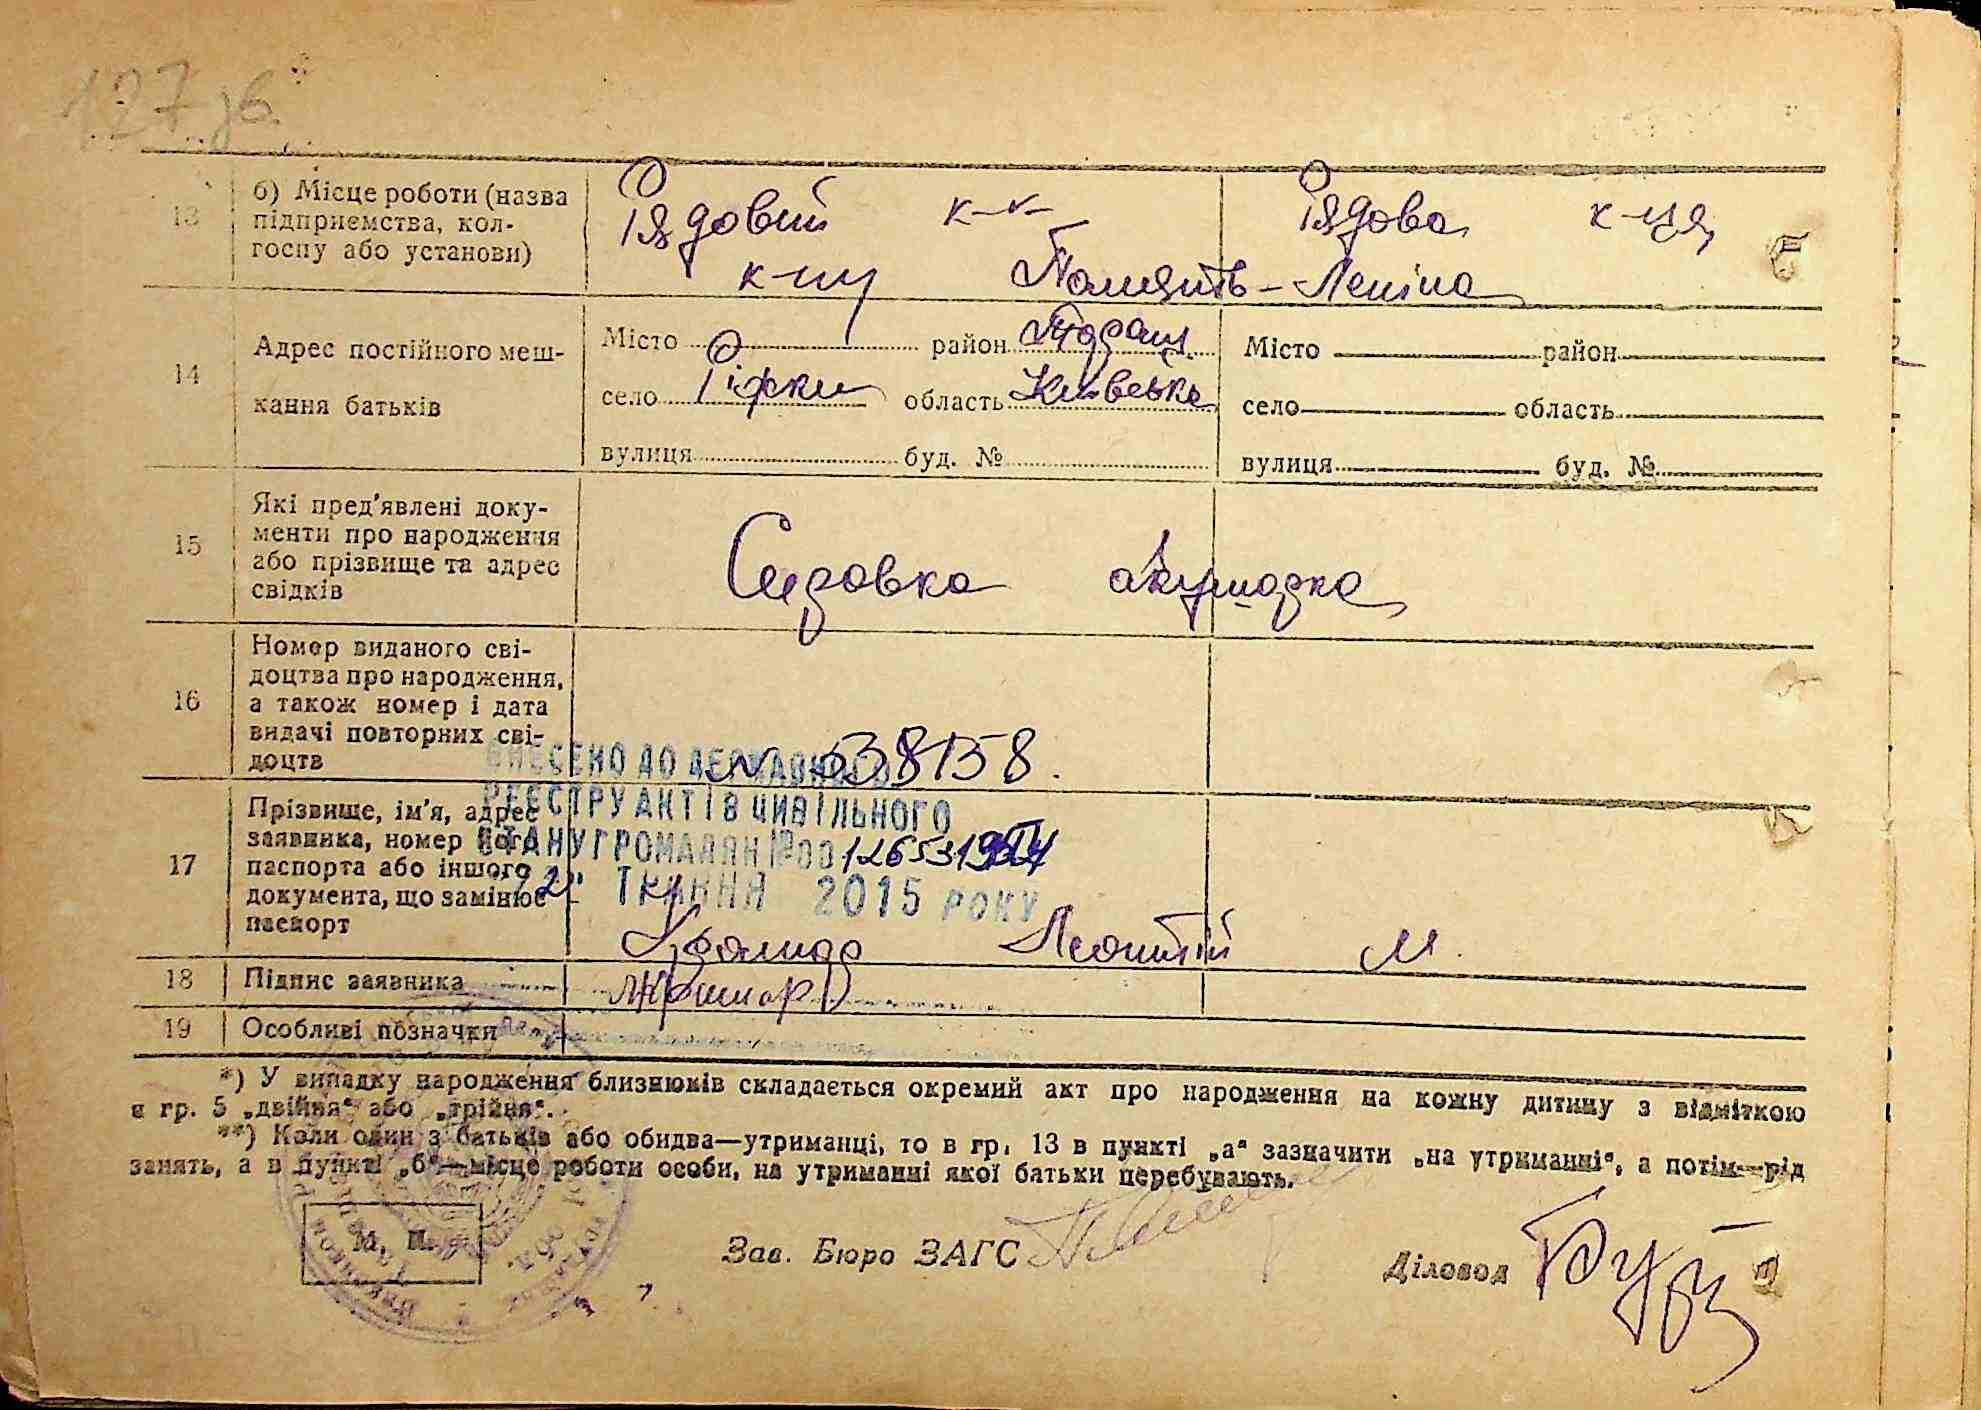 127 зб.
13 б) Місце роботи (назва підприємства, колгоспу або установи)
Рядовий к-к Рядова к-ця
к-пу Память-Леніна
14 Адрес постійного мешкання батьків
Місто район Таращ. Місто район
село Ріжки область Київська село область
вулиця буд. № вулиця буд. №
15 Які пред'явлені документи про народження або прізвище та адрес свідків
акушорка
16 Номер виданого свідоцтва про народження, а також номер і дата видачі повторних свідоцтв
№ 538158.
ВНЕСЕНО ДО ДЕРЖАВНОГО
РЕЄСТРУ АКТІВ ЦИВІЛЬНОГО
СТАНУ ГРОМАДЯН №00
"12" ТРАВНЯ 2015 РОКУ
17 Прізвище, ім'я, адрес заявника, номер його паспорта або іншого документа, що замінює паспорт
Леонтій М.
18 Підпис заявника
19 Особливі позначки
*) У випадку народження близнюків складається окремий акт про народження на кожну дитину з відміткою
в гр. 5 „двійня“ або „трійня“.
**) Коли один з батьків або обидва—утриманці, то в гр. 13 в пункті „а“ зазначити „на утриманні“, а потім—рід
занять, а в пункті „б“—місце роботи особи, на утриманні якої батьки перебувають.
М. П.
Зав. Бюро ЗАГС
Діловод